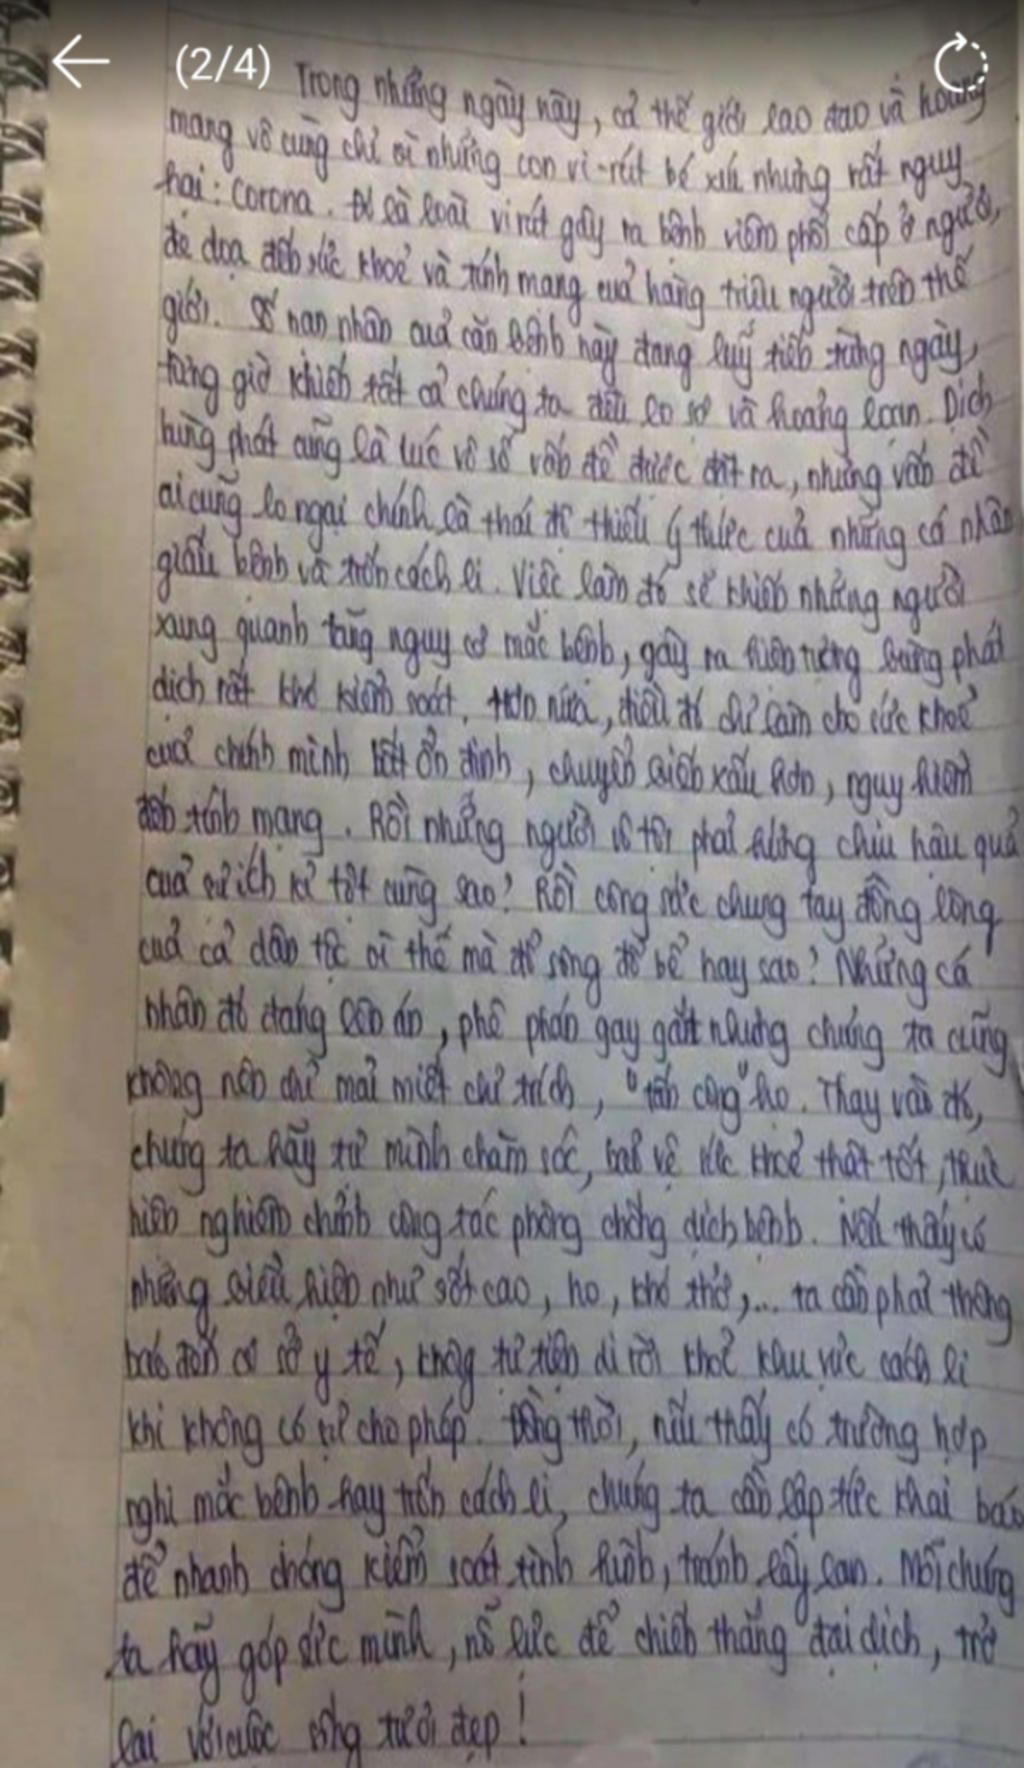 (2/4)
Trong những ngày này, cả thế giới lao đao và hoang
mang vô cùng chỉ vì những con vi-rút bé xíu nhưng rất nguy
hại: Corona. Đó là loài virút gây ra bệnh viêm phổi cấp ở người,
đe doạ đến sức khoẻ và tính mạng của hàng triệu người trên thế
giới. Số nạn nhân của căn bệnh này đang luỹ tiến từng ngày,
từng giờ khiến tất cả chúng ta đều lo sợ và hoảng loạn. Dịch
bùng phát cũng là lúc vô số vấn đề được đặt ra, nhưng vấn đề
ai cũng lo ngại chính là thái độ thiếu ý thức của những cá nhân
giấu bệnh và trốn cách li. Việc làm đó sẽ khiến những người
xung quanh tăng nguy cơ mắc bệnh, gây ra hiện tượng bùng phát
dịch rất khó kiểm soát. Hơn nữa, điều đó chỉ làm cho sức khoẻ
của chính mình bất ổn định, chuyển biến xấu hơn, nguy hiểm
đến tính mạng. Rồi những người vô tội phải hứng chịu hậu quả
của sự ích kỉ tột cùng sao? Rồi công sức chung tay đồng lòng
của cả dân tộc vì thế mà đổ sông đổ bể hay sao? Những cá
nhân đó đáng lên án, phê phán gay gắt nhưng chúng ta cũng
không nên chỉ mải miết chỉ trích, "tấn công" họ. Thay vào đó,
chúng ta hãy tự mình chăm sóc, bảo vệ sức khoẻ thật tốt, thực
hiện nghiêm chỉnh công tác phòng chống dịch bệnh. Nếu thấy có
những biểu hiện như sốt cao, ho, khó thở,... ta cần phải thông
báo đến cơ sở y tế, không tự tiện di rời khỏi khu vực cách li
khi không có sự cho phép. Đồng thời, nếu thấy có trường hợp
nghi mắc bệnh hay trốn cách li, chúng ta cần lập tức khai báo
để nhanh chóng kiểm soát tình hình, tránh lây lan. Mỗi chúng
ta hãy góp sức mình, nỗ lực để chiến thắng đại dịch, trở
lại với cuộc sống tươi đẹp!